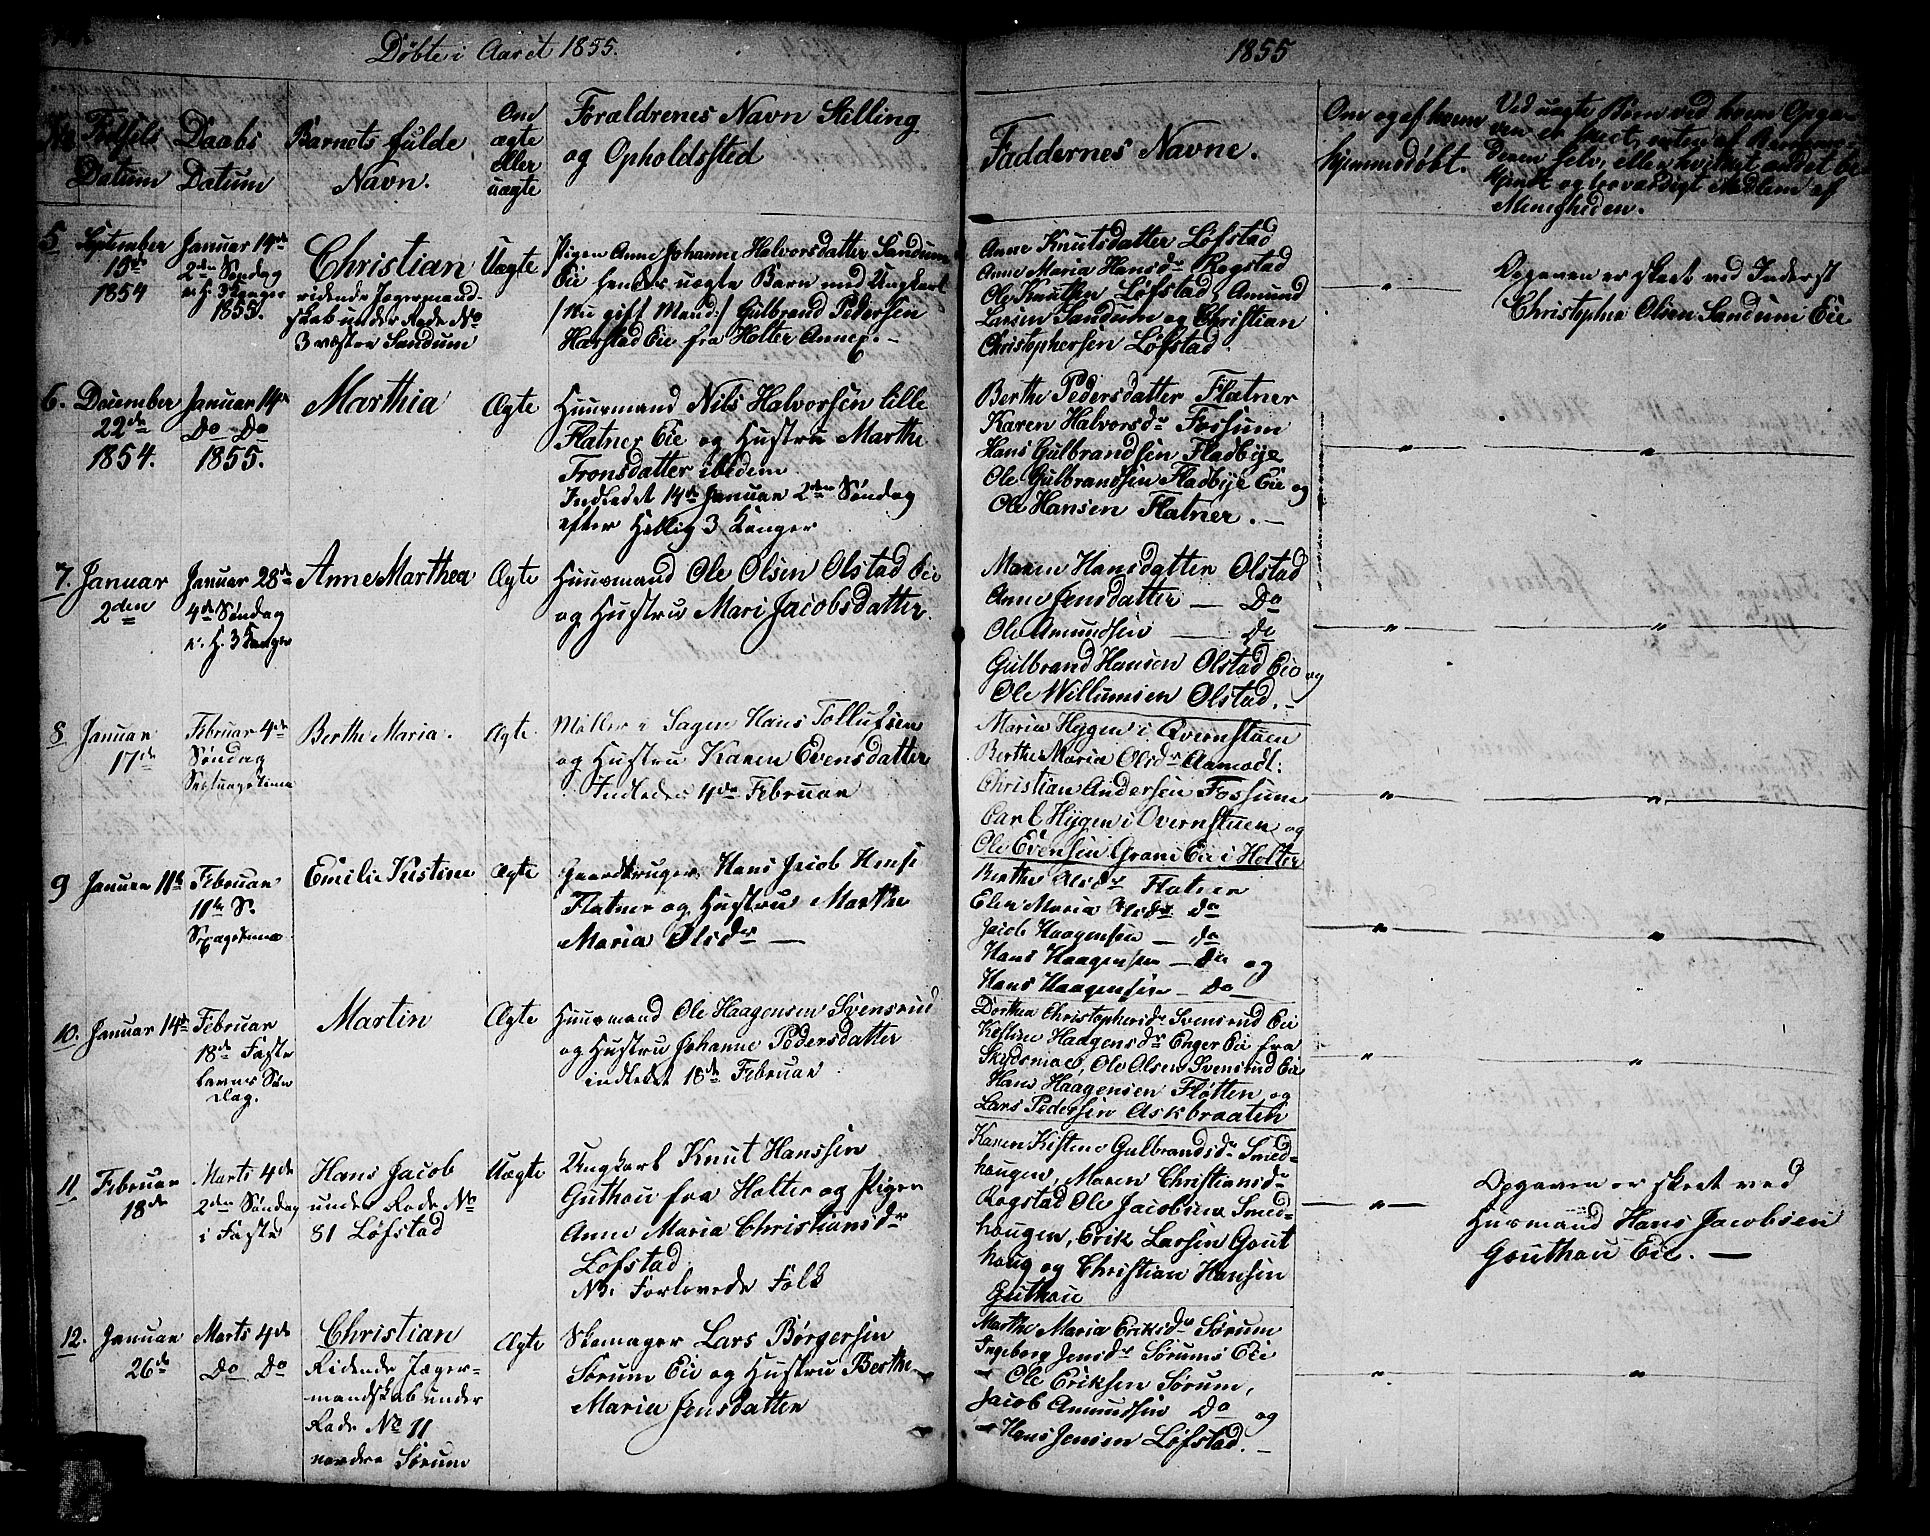 Døbte i Aaret 1855.
1855
No
Fødsels
Datum
Daabs
Datum
Barnets fulde
Navn.
Om
ægte
eller
uægte
Forældrenes Navn Stilling
og Opholdssted
Faddernes Navne.
Om og af hvem
hjemmedøbt.
Ved uægte Børn ved hvem Opga-
ven er skeet, enten af Barne-
deren selv, eller hvilket andet be-
kjendt og troværdigt Medlem af
Menigheden.
5
September
15de
1854
Januar 14de
2den Søndag
e. H. 3 Konger
1855.
Christian
ridende Jægermand-
skab under Rode No
3 vestre Sandum
Uægte
Pigen Anne Johanne Halvorsdatter Sandum
Eie hendes uægte Barn med Ungkarl
/: Nu gift Mand :/ Gulbrand Pedersen
Harstad Eie fra Holter Annex. -
Anne Knutsdatter Løfstad
Anne Maria Hansdr Rogstad
Ole Knutsen Løfstad, Amund
Larsen Sandum og Christian
Christophersen Løfstad
"
Opgaven er skeet ved Inderst
Christopher Olsen Sandum Eie
6.
December
22de
1854.
Januar 14de
Do Do
1855.
Marthia
Ægte
Huusmand Nils Halvorsen lille
Flatner Eie og Hustru Marthe
Tronsdatter ibidem
Indledet 14de Januar 2den Søndag
efter Hellig 3 Konger
Berthe Pedersdatter Flatner
Karen Halvorsdr Fossum
Hans Gulbrandsen Fladbye
Ole Gulbrandsen Fladbye Eie og
Ole Hansen Flatner. -
"
"
7.
Januar
2den
Januar 28de
4de Søndag
e. H. 3 Konger
Anne Marthea
Ægte
Huusmand Ole Olsen Olstad Eie
og Hustru Mari Jacobsdatter.
Maren Hansdatter Olstad
Anne Jensdatter — Do
Ole Amundsen — Do
Gulbrand Hansen Olstad Eie og
Ole Willumsen Olstad. -
"
"
8
Januar
17de
Februar 4de
Søndag
Septuagesima
Berthe Maria.
Ægte.
Møller i Sagen Hans Tollufsen
og Hustru Karen Evensdatter
Indledes 4de Februar
Maria Hygen i Qvernstuen
Berthe Maria Olsdr Aamodt.
Christian Andersen Fossum
Carl Hygen i Qvernstuen og
Ole Evensen Grani Eie i Holter
"
"
9
Januar 11te
Februar
11te S.
Sexagesima
Emilie Kistine
Ægte
Gaardbruger Hans Jacob Hansen
Flatner og Hustru Marthe
Maria Olsdr —
Berthe Olsdr Flatner
Elen Maria Olsdr Do
Jacob Haagensen — Do
Hans Haagensen — Do og
Hans Haagensen — Do
"
"
10.
Januar 14de
Februar
18de Faste
lavns Søn
dag.
Martin
Ægte
Huusmand Ole Haagensen Svensrud
og Hustru Johanne Pedersdatter
indledet 18de Februar
Dorthea Christophersdr Svensrud Eie
Kistine Haagensdr Enger Eie fra
Skydsmoe, Ole Olsen Svensrud Eie
Hans Haagensen Fløtten, og
Lars Pedersen Askbraaten
"
"
11
Februar
18de
Marts 4de
2den Søndag
i Faste
Hans Jacob
under Rode No
81 Løfstad
Uægte
Ungkarl Knut Hanssen
Guthou fra Holter og Pigen
Anne Maria Christiansdr
Løfstad
NB. Forlovede Folk
Karen Kistine Gulbrandsdr Smed-
hougen, Maren Christiansdr
Rogstad Ole Jacobsen Smed-
hougen, Erik Larsen Gout
houg og Christian Hansen
Guthou
"
Opgaven er skeet ved
Husmand Hans Jacobsen
Gouthou Eie. —
12.
Januar
26de
Marts 4de
Do Do
Christian
Ridende Jæger-
mandskab under
Rode No 11
nordre Sørum
Ægte
Skomager Lars Børgersen
Sørum Eie og Hustru Berthe
Maria Jensdatter
Marthe Maria Eriksdr Sørum
Ingeborg Jensdr Sørums Eie
Ole Eriksen Sørum,
Jacob Amundsen Do og
Hans Jensen Løfstad. -
"
"